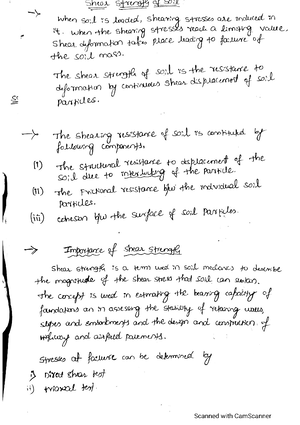 Shear Strength of Soil
→ When soil is loaded, shearing stresses are induced in
it. when the shearing stresses reach a limiting value,
shear deformation takes place leading to failure of
the soil mass.
The shear strength of soil is the resistance to
deformation by continuous shear displacement of soil
particles.
→ The shearing resistance of soil is constituted by
following components.
(i) The structural resistance to displacement of the
soil due to interlocking of the particle.
(ii) The frictional resistance b/w the individual soil
particles.
(iii) cohesion b/w the surface of soil particles.
→ Importance of shear strength
Shear strength is a term used in soil mechanics to describe
the magnitude of the shear stress that soil can sustain.
The concept is used in estimating the bearing capacity of
foundations an in assessing the stability of retaining walls,
slopes and embankments and the design and construction of
highway and airfield pavements.
Stresses at failure can be determined by
i) Direct shear test
ii) triaxial test
Scanned with CamScanner